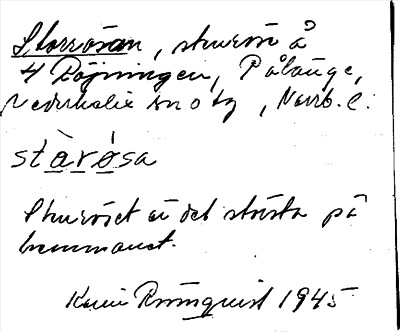 Storrösan, stenrös å
4 Röjningen, Pålänge,
Nederkalix sn o tg, Norrb. l.
stàrǿsa
Stenröset är det största på
hemmanet.
Karin Rönnquist 1945